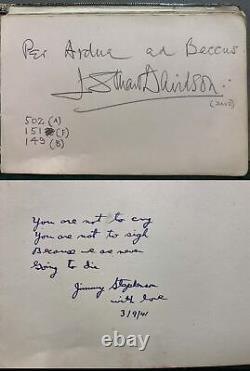 Per Ardua ad Beccus
J. Stuart Davidson.
502 (A)
151 (F)
149 (B)
You are not to cry
You are not to sigh
Because we are never
Going to die
Jimmy Stephenson
with love
3/9/41